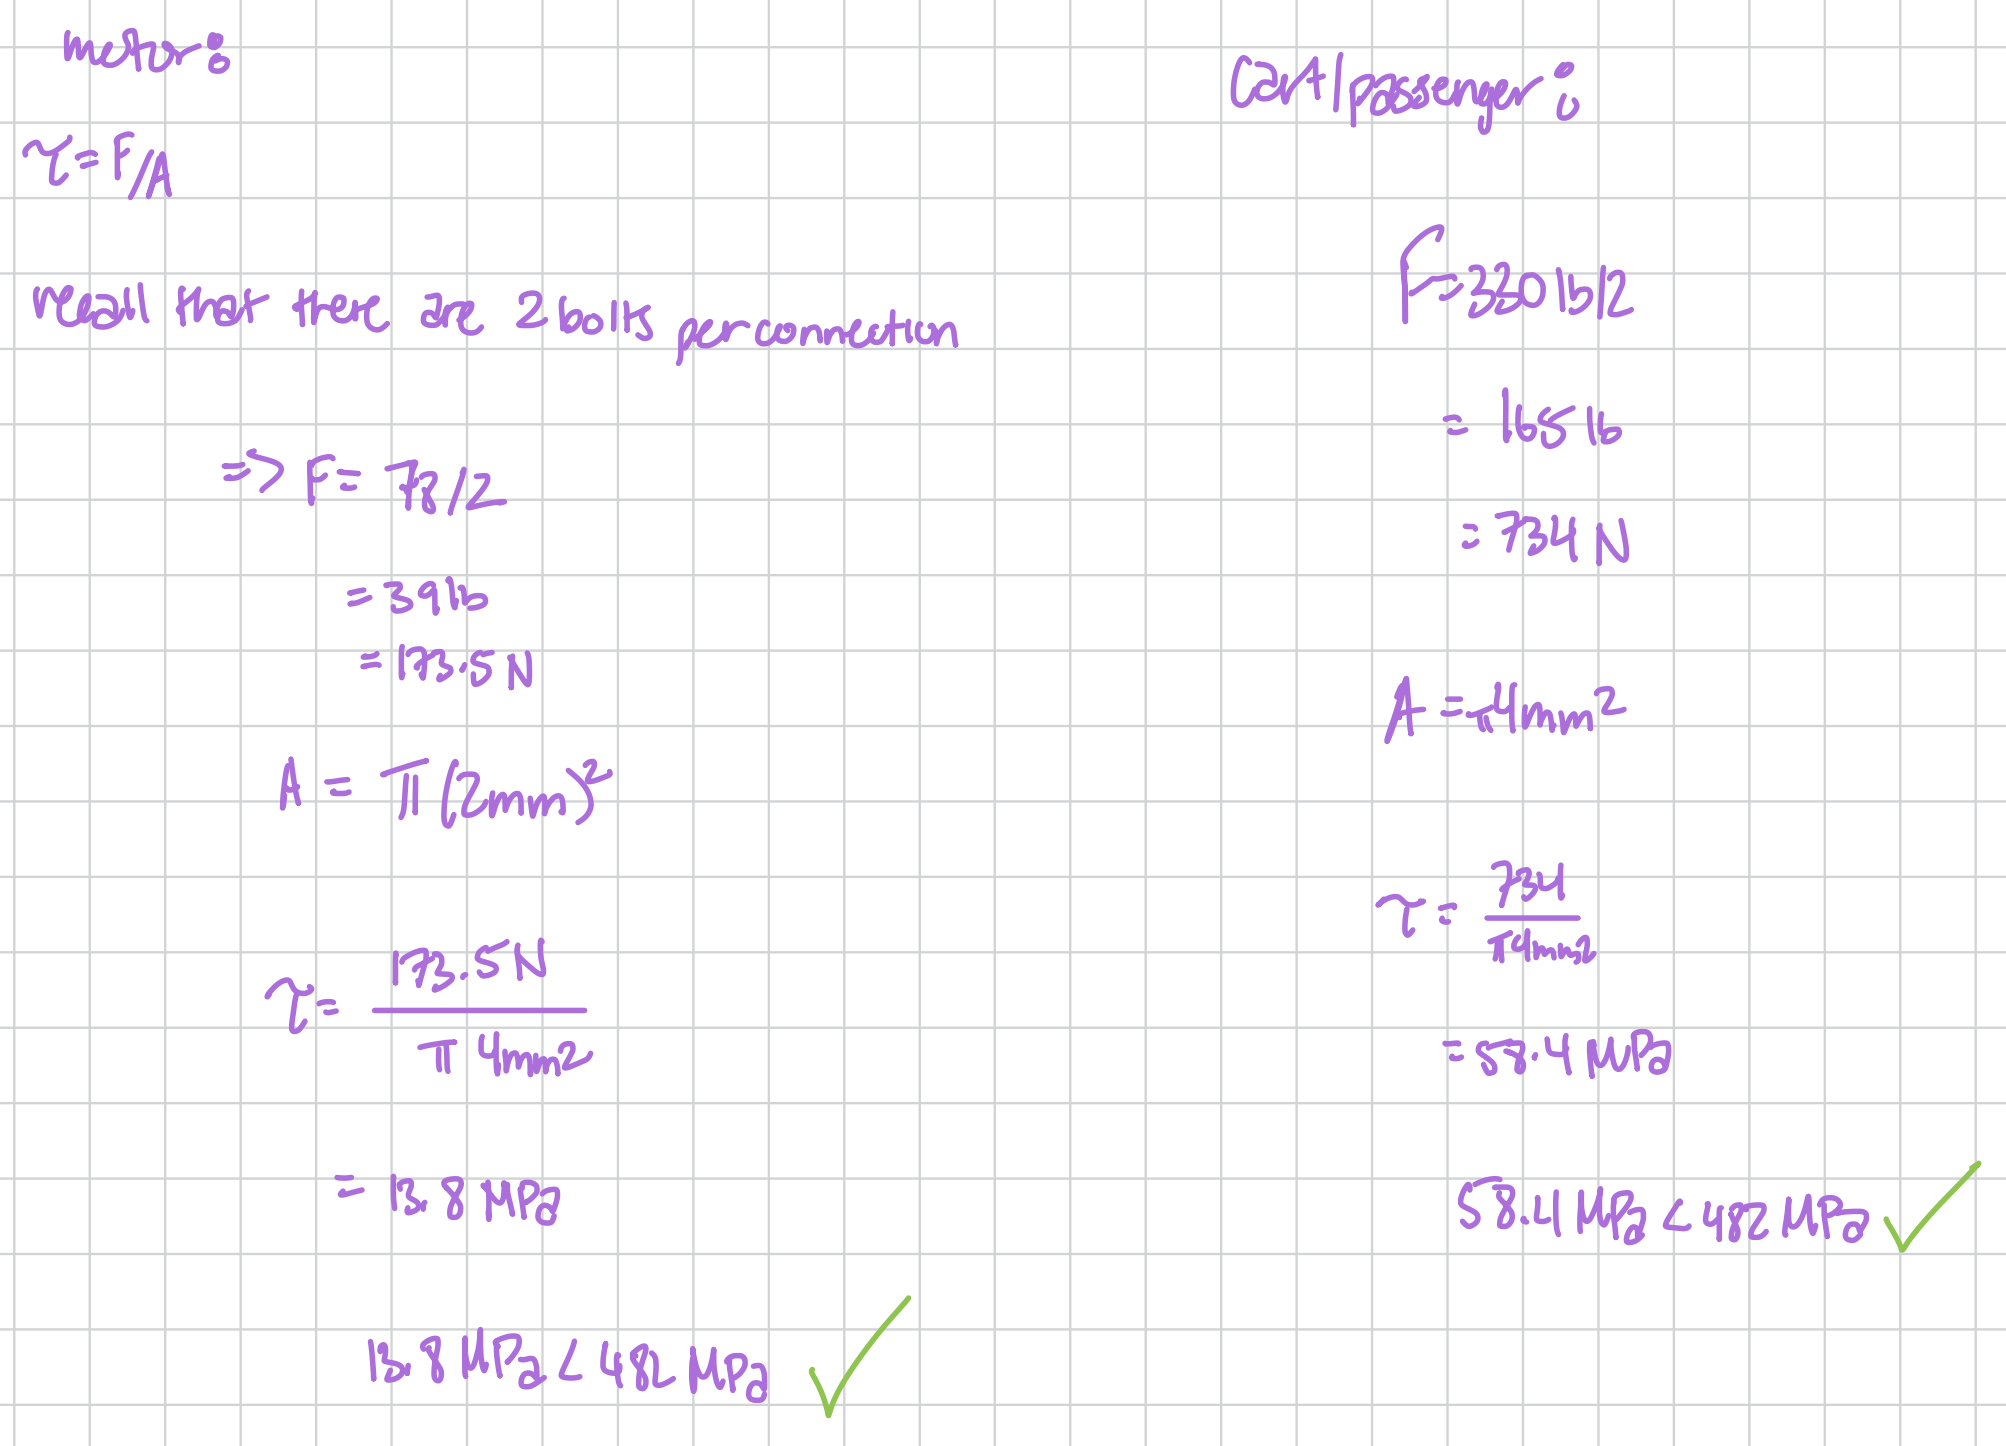 motor:
τ = F/A
recall that there are 2 bolts per connection
=> F = 78/2
= 39 lb
= 173.5 N
A = π(2mm)²
τ = 173.5 N / π 4mm²
= 13.8 MPa
13.8 MPa < 482 MPa ✓
Cart/passenger:
F = 330 lb/2
= 165 lb
= 734 N
A = π4mm²
τ = 734 / π4mm²
= 58.4 MPa
58.4 MPa < 482 MPa ✓